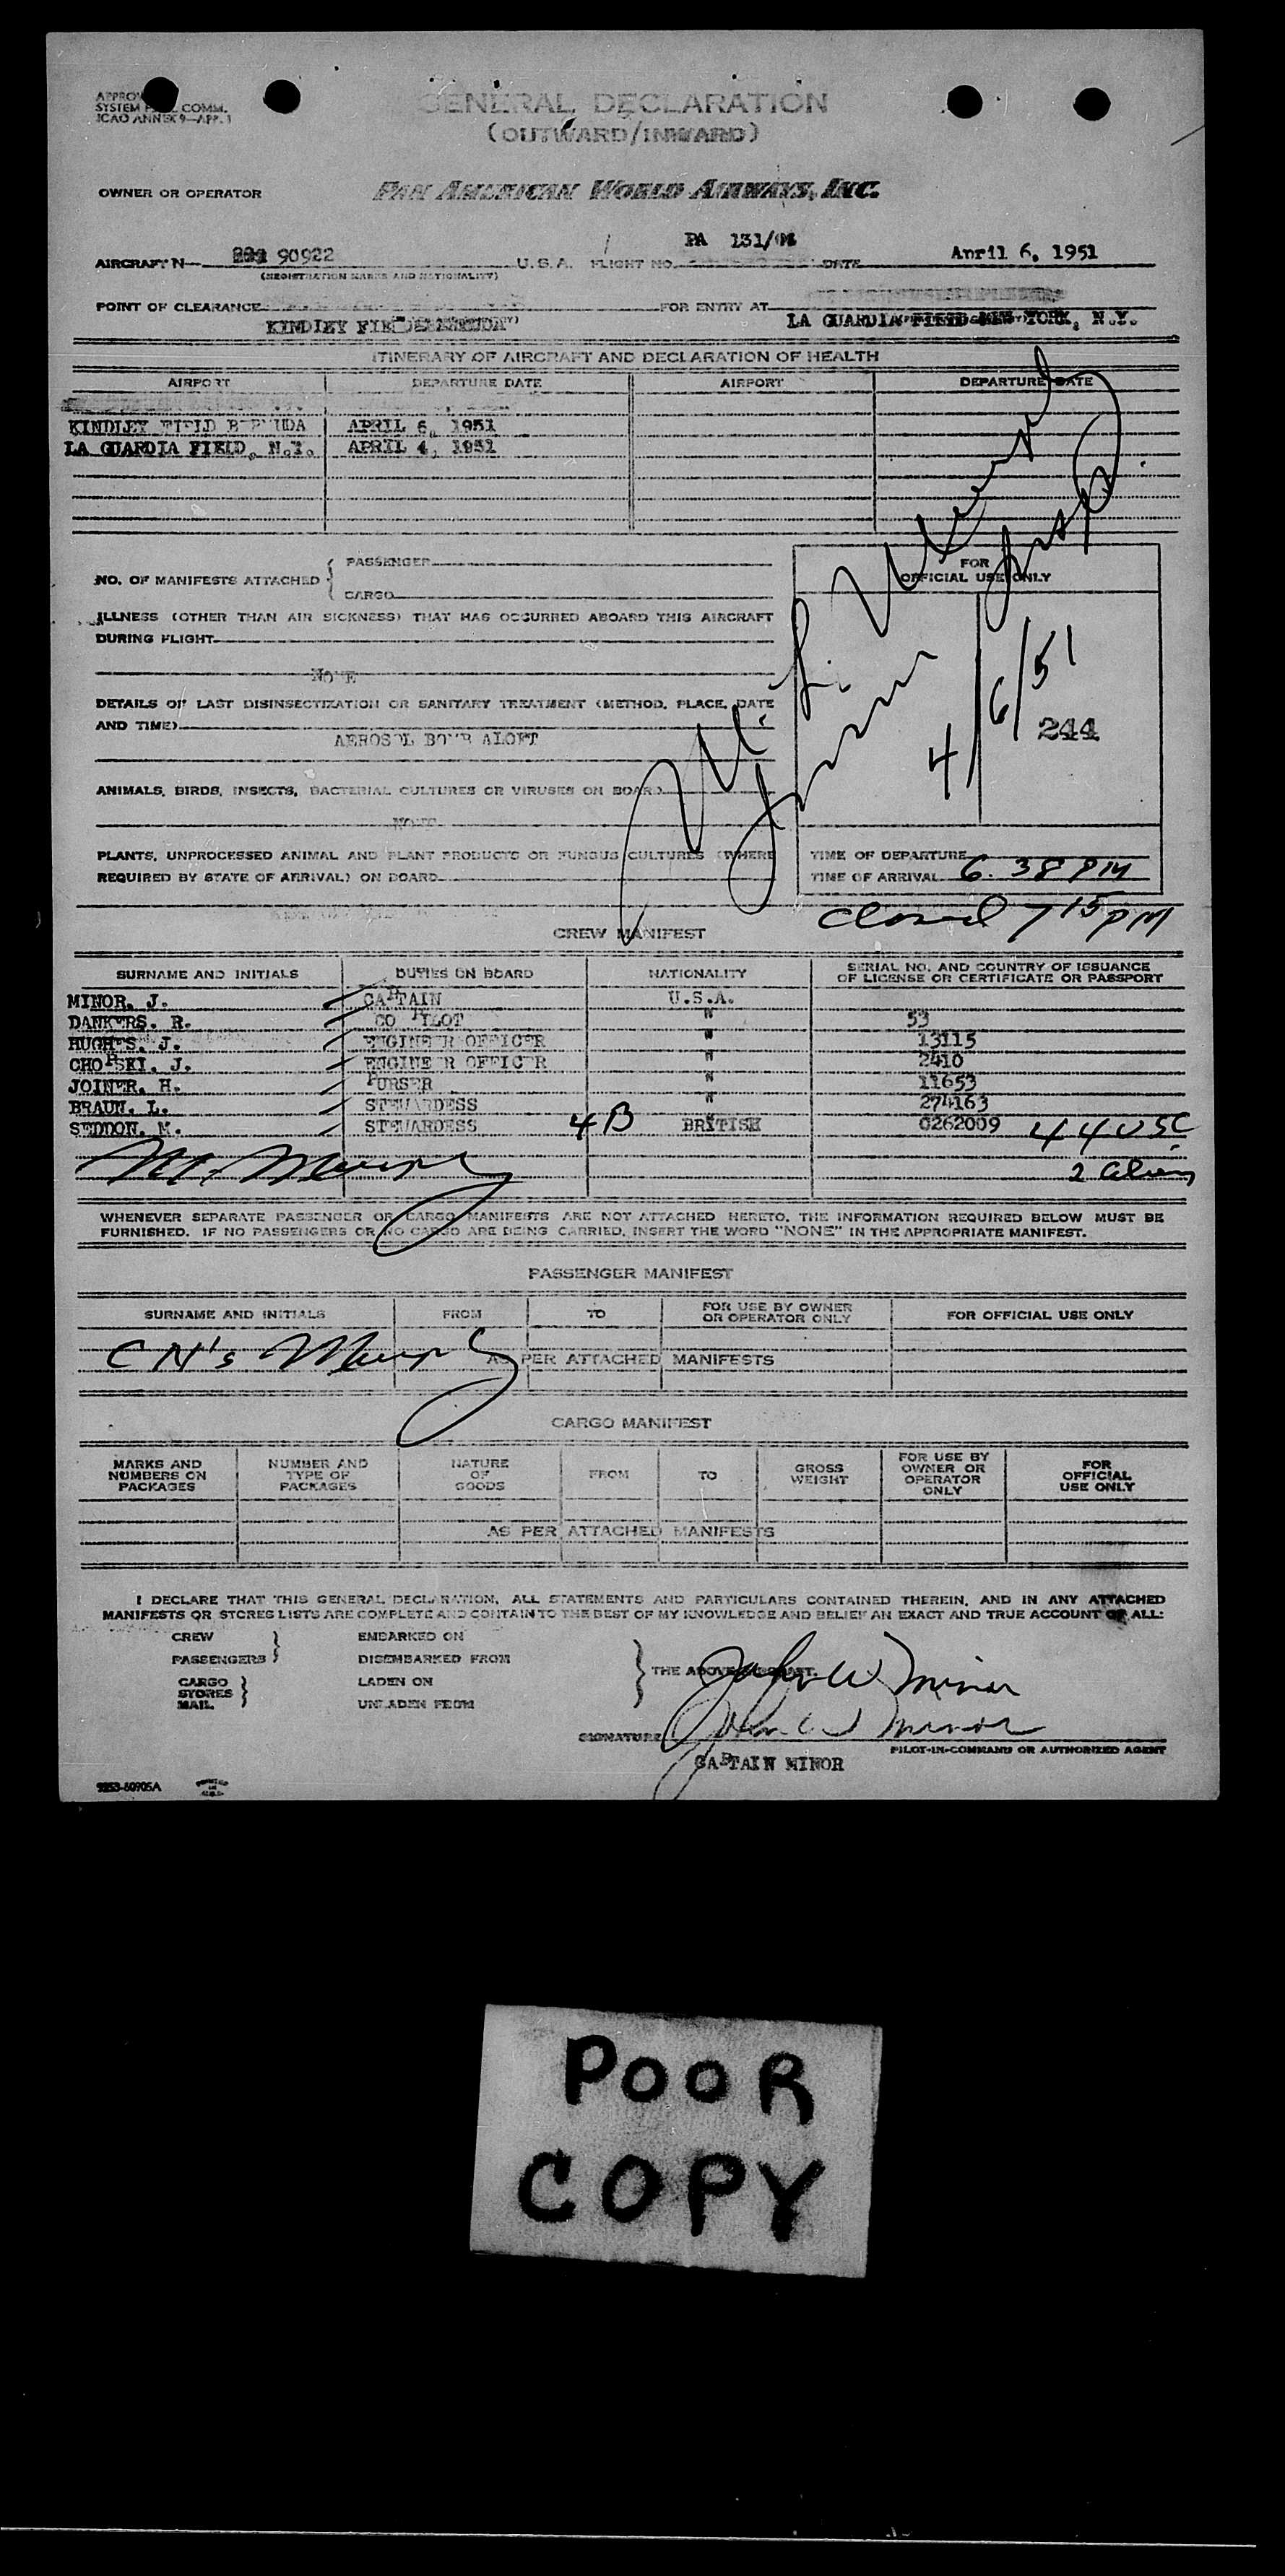 GENERAL DECLARATION
(OUTWARD/INWARD)
SYSTEM COMM.
ICAO ANNEX 9—APP. 1
OWNER OR OPERATOR PAN AMERICAN WORLD AIRWAYS, INC.
AIRCRAFT N— 90922 U.S.A. FLIGHT NO. PA 131/ DATE April 6, 1951
(REGISTRATION MARKS AND NATIONALITY)
POINT OF CLEARANCE FOR ENTRY AT
KINDLEY LA GUARDIA FIELD NEW YORK, N.Y.
ITINERARY OF AIRCRAFT AND DECLARATION OF HEALTH
AIRPORT DEPARTURE DATE AIRPORT DEPARTURE DATE
KINDLEY FIELD APRIL 6, 1951
LA GUARDIA FIELD, N.Y. APRIL 4, 1951
NO. OF MANIFESTS ATTACHED { PASSENGER
CARGO
ILLNESS (OTHER THAN AIR SICKNESS) THAT HAS OCCURRED ABOARD THIS AIRCRAFT
DURING FLIGHT
NONE
DETAILS OF LAST DISINSECTIZATION OR SANITARY TREATMENT (METHOD, PLACE, DATE
AND TIME)
AEROSOL ALOFT
ANIMALS, BIRDS, INSECTS, BACTERIAL CULTURES OR VIRUSES ON BOARD
NONE
PLANTS, UNPROCESSED ANIMAL AND PLANT PRODUCTS OR FUNGUS CULTURES (WHERE
REQUIRED BY STATE OF ARRIVAL) ON BOARD
FOR
OFFICIAL USE ONLY
4/6/51
244
TIME OF DEPARTURE
TIME OF ARRIVAL 6.38 PM
closed 7 15 PM
CREW MANIFEST
SURNAME AND INITIALS DUTIES ON BOARD NATIONALITY SERIAL NO. AND COUNTRY OF ISSUANCE
OF LICENSE OR CERTIFICATE OR PASSPORT
MINOR, J. CAPTAIN U.S.A.
DANKERS. R. CO PILOT " 53
HUGHES, J. ENGINEER OFFICER " 13115
CHOPSKI, J. ENGINEER OFFICER " 2410
JOINER, H. PURSER " 11653
BRAUN, L. STEWARDESS " 274163
SEDDON, M. STEWARDESS 4B BRITISH 0262009 44 USC
2 aliens
WHENEVER SEPARATE PASSENGER OR CARGO MANIFESTS ARE NOT ATTACHED HERETO, THE INFORMATION REQUIRED BELOW MUST BE
FURNISHED. IF NO PASSENGERS OR NO CARGO ARE BEING CARRIED, INSERT THE WORD "NONE" IN THE APPROPRIATE MANIFEST.
PASSENGER MANIFEST
SURNAME AND INITIALS FROM TO FOR USE BY OWNER
OR OPERATOR ONLY FOR OFFICIAL USE ONLY
CN's Murphy AS PER ATTACHED MANIFESTS
CARGO MANIFEST
MARKS AND
NUMBERS ON
PACKAGES
NUMBER AND
TYPE OF
PACKAGES
NATURE
OF
GOODS
FROM TO GROSS
WEIGHT
FOR USE BY
OWNER OR
OPERATOR
ONLY
FOR
OFFICIAL
USE ONLY
AS PER ATTACHED MANIFESTS
I DECLARE THAT THIS GENERAL DECLARATION, ALL STATEMENTS AND PARTICULARS CONTAINED THEREIN, AND IN ANY ATTACHED
MANIFESTS OR STORES LISTS ARE COMPLETE AND CONTAIN TO THE BEST OF MY KNOWLEDGE AND BELIEF AN EXACT AND TRUE ACCOUNT OF ALL:
CREW EMBARKED ON
PASSENGERS DISEMBARKED FROM
THE ABOVE AIRCRAFT.
CARGO LADEN ON
STORES
MAIL UNLADEN FROM
John W Minor
John W Minor
SIGNATURE
PILOT-IN-COMMAND OR AUTHORIZED AGENT
CAPTAIN MINOR
PRINTED
IN
U.S.A.
POOR
COPY